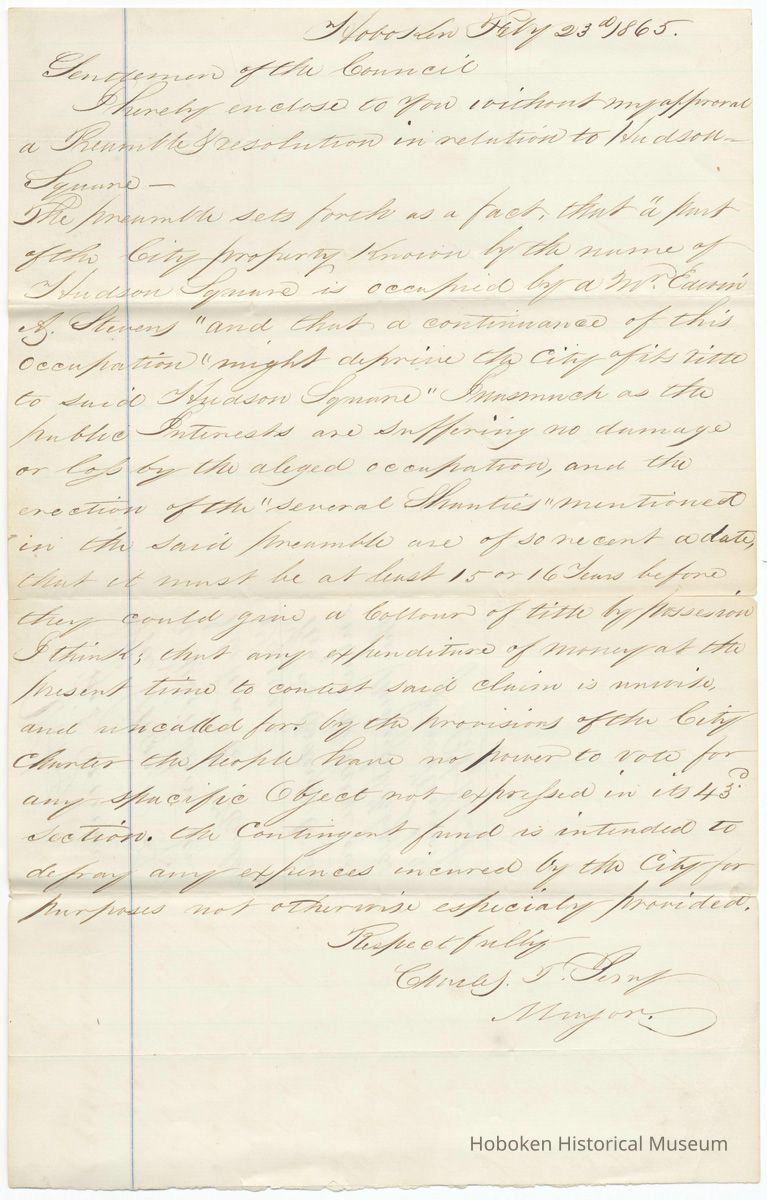 Hoboken Feby 23d 1865.
Gentlemen of the Council
I hereby enclose to You without my approval
a Preamble & resolution in relation to Hudson-
Square —
The preamble sets forth as a fact, that "a part
of the City property Known by the name of
Hudson Square is occupied by a Mr. Edwin
A. Stevens" and that a continuance of this
occupation "might deprive the City of its title
to said Hudson Square" Inasmuch as the
public Interests are suffering no damage
or loss by the aleged occupation, and the
erection of the "several Shanties" mentioned
in the said preamble are of so recent a date,
that it must be at least 15 or 16 Years before
they could give a Collour of title by possession
I think, that any expenditure of money at the
present time to contest said claim is unwise,
and uncalled for. by the provisions of the City
Charter the people have no power to vote for
any spacific Object not expressed in its 43d
section. the Contingent fund is intended to
defray any expences incured by the City for
purposes not otherwise especialy provided.
Respectfully
Charles T. Perry
Mayor.
Hoboken Historical Museum